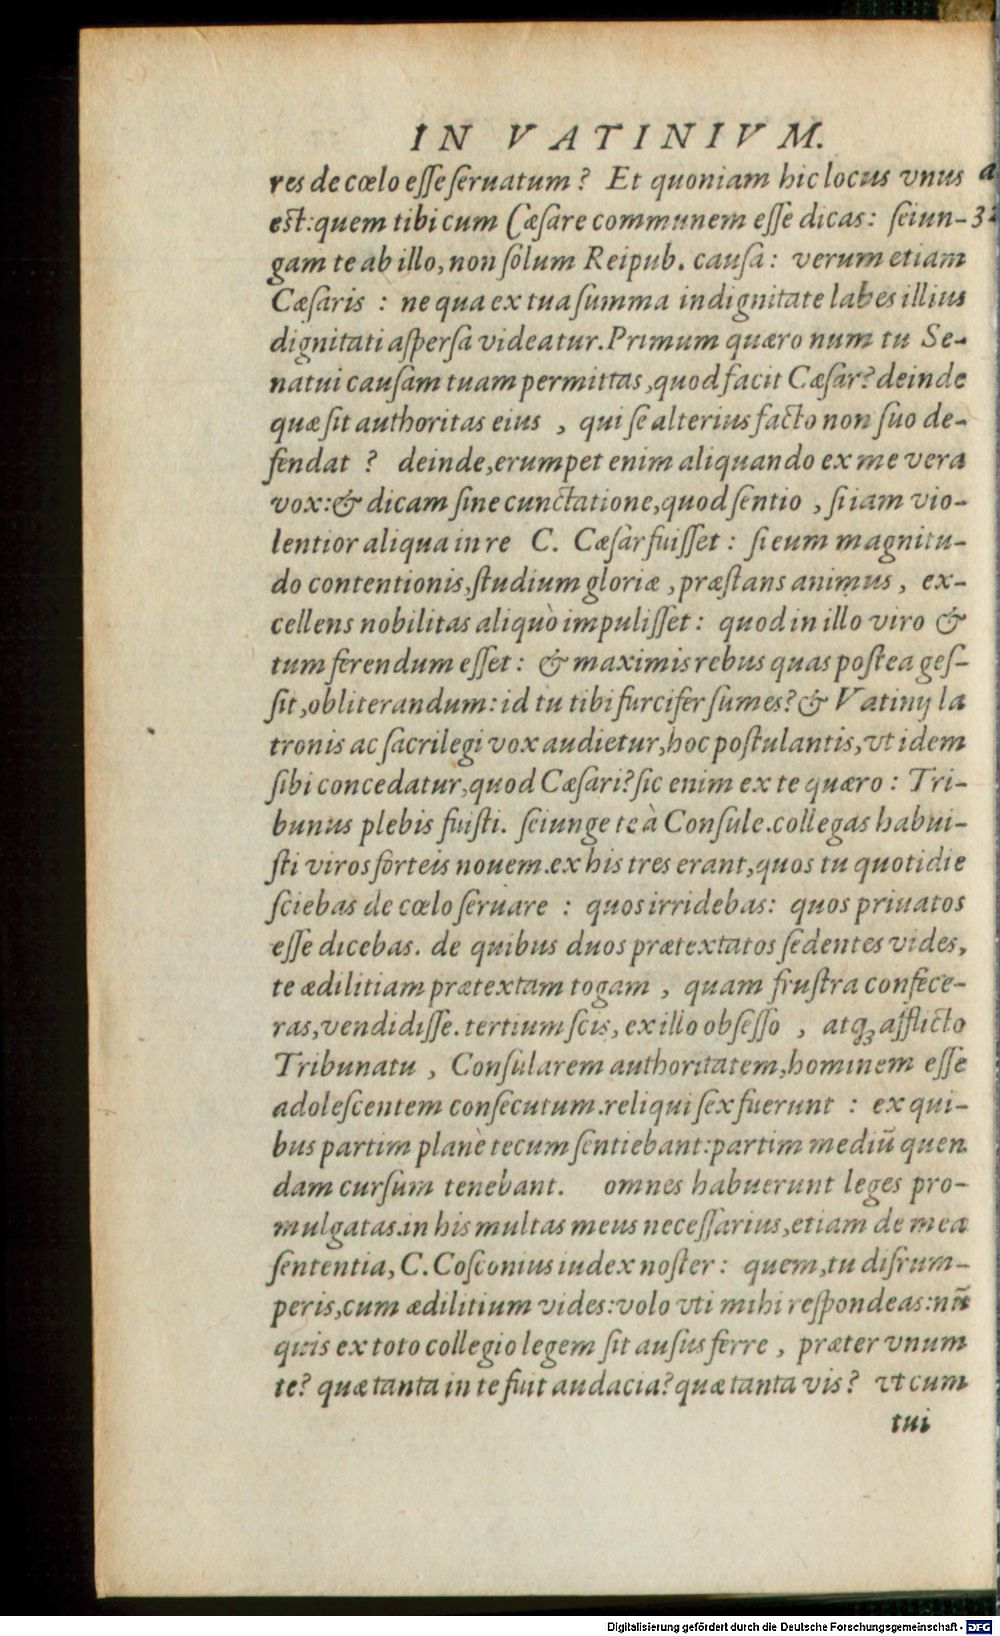 IN VATINIVM.
res de cœlo eſſe ſeruatum? Et quoniam hic locus vnus
eſt: quem tibi cum Cæſare communem eſſe dicas: ſeiun-
gam te ab illo, non ſolum Reipub. cauſa: verum etiam
Cæſaris: ne qua ex tua ſumma indignitate labes illius
dignitati aſperſa videatur. Primum quæro num tu Se-
natui cauſam tuam permittas, quod facit Cæſar? deinde
quæ ſit authoritas eius, qui ſe alterius facto non ſuo de-
fendat? deinde, erumpet enim aliquando ex me vera
vox: & dicam ſine cunctatione, quod ſentio, ſi iam vio-
lentior aliqua in re C. Cæſar fuiſſet: ſi eum magnitu-
do contentionis, ſtudium gloriæ, præſtans animus, ex-
cellens nobilitas aliquò impuliſſet: quod in illo viro &
tum ferendum eſſet: & maximis rebus quas poſtea geſ-
ſit, obliterandum: id tu tibi furcifer ſumes? & Vatinij la
tronis ac ſacrilegi vox audietur, hoc poſtulantis, vt idem
ſibi concedatur, quod Cæſari? ſic enim ex te quæro: Tri-
bunus plebis fuiſti. ſeiunge te à Conſule. collegas habui-
ſti viros forteis nouem. ex his tres erant, quos tu quotidie
ſciebas de cœlo ſeruare: quos irridebas: quos priuatos
eſſe dicebas. de quibus duos prætextatos ſedentes vides,
te ædilitiam prætextam togam, quam fruſtra confece-
ras, vendidiſſe. tertium ſcis, ex illo obſeſſo, atq; afflicto
Tribunatu, Conſularem authoritatem, hominem eſſe
adoleſcentem conſecutum. reliqui ſex fuerunt: ex qui-
bus partim planè tecum ſentiebant: partim mediũ quen
dam curſum tenebant. omnes habuerunt leges pro-
mulgatas. in his multas meus neceſſarius, etiam de mea
ſententia, C. Coſconius iudex noſter: quem, tu diſrum-
peris, cum ædilitium vides: volo vti mihi reſpondeas: nũ
quis ex toto collegio legem ſit auſus ferre, præter vnum
te? quæ tanta in te fuit audacia? quæ tanta vis? vt cum
tui
Digitalisierung gefördert durch die Deutsche Forschungsgemeinschaft - DFG